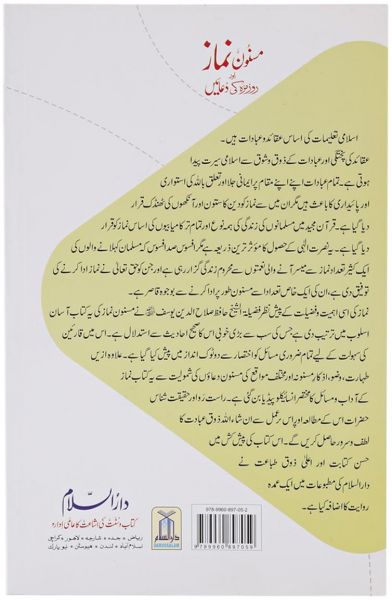 مسنون نماز
اور
روزمرہ کی دعائیں
اسلامی تعلیمات کی اساس عقائد و عبادات ہیں۔
عقائد کی پختگی اور عبادات کے ذوق و شوق سے اسلامی سیرت پیدا
ہوتی ہے۔ تمام عبادات اپنے اپنے مقام پر ایمانی جلا اور تعلق باللہ کی استواری
اور پائیداری کا باعث ہیں مگر ان میں سے نماز کو دین کا ستون اور آنکھوں کی ٹھنڈک قرار
دیا گیا ہے۔ قرآن مجید میں مسلمانوں کی زندگی کی ہمہ نوع اور تمام تر کامیابیوں کی اساس نماز کو قرار
دیا گیا ہے۔ یہ نصرت الٰہی کے حصول کا مؤثر ترین ذریعہ ہے مگر افسوس صد افسوس کہ مسلمان کہلانے والوں کی
ایک کثیر تعداد نماز سے میسر آنے والی نعمتوں سے محروم زندگی گزار رہی ہے اور جن کو حق تعالیٰ نے نماز ادا کرنے کی
توفیق دی ہے، ان کی ایک خاص تعداد اسے مسنون طور پر ادا کرنے سے بوجوہ قاصر ہے۔
نماز کی اسی اہمیت و فضیلت کے پیش نظر فضیلۃ الشیخ حافظ صلاح الدین یوسف نے مسنون نماز کی یہ کتاب آسان
اسلوب میں ترتیب دی ہے جس کی سب سے بڑی خوبی اس کا صحیح احادیث سے استدلال ہے۔ اس میں قارئین
کی سہولت کے لیے تمام ضروری مسائل کو اختصار سے دوٹوک انداز میں پیش کیا گیا ہے۔ علاوہ ازیں
طہارت، وضو، اذکار مسنونہ اور مختلف مواقع کی مسنون دعاؤں کی شمولیت سے یہ کتاب نماز
کے آداب و مسائل کا مختصر انسائیکلوپیڈیا بن گئی ہے۔ راست رو اور حقیقت شناس
حضرات اس کے مطالعہ اور اس پر عمل سے ان شاء اللہ ذوق عبادت کا
لطف و سرور حاصل کریں گے۔ اس کتاب کی پیش کش میں
حسن کتابت اور اعلیٰ ذوق طباعت نے
دارالسلام کی مطبوعات میں ایک عمدہ
روایت کا اضافہ کیا ہے۔
دارالسلام
کتاب و سنت کی اشاعت کا عالمی ادارہ
ریاض • جدہ • شارجہ • لاہور • کراچی
اسلام آباد • لندن • ہیوسٹن • نیویارک
978-9960-897-05-2
9789960897059
دارالسلام
DARUSSALAM